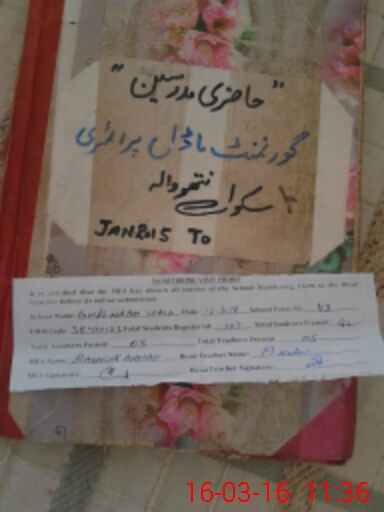 "حاضری مدرسین"
گورنمنٹ ماڈل پرائمری
سکول نتھووالہ
JAN2015 TO
MONITORING VISIT PROOF
It is certified that the MEA has shown all entries of the School Monitoring Form to the Head
Teacher before its online submission.
School Name Date: School Form No
EMIS Code: Total Students Registered Total Students Present: 92
Total Teachers Posted: 05 Total Teachers Present: 05
MEA Name: Head Teacher Name:
MEA Signature: Head Teacher Signature:
16-03-16 11:36